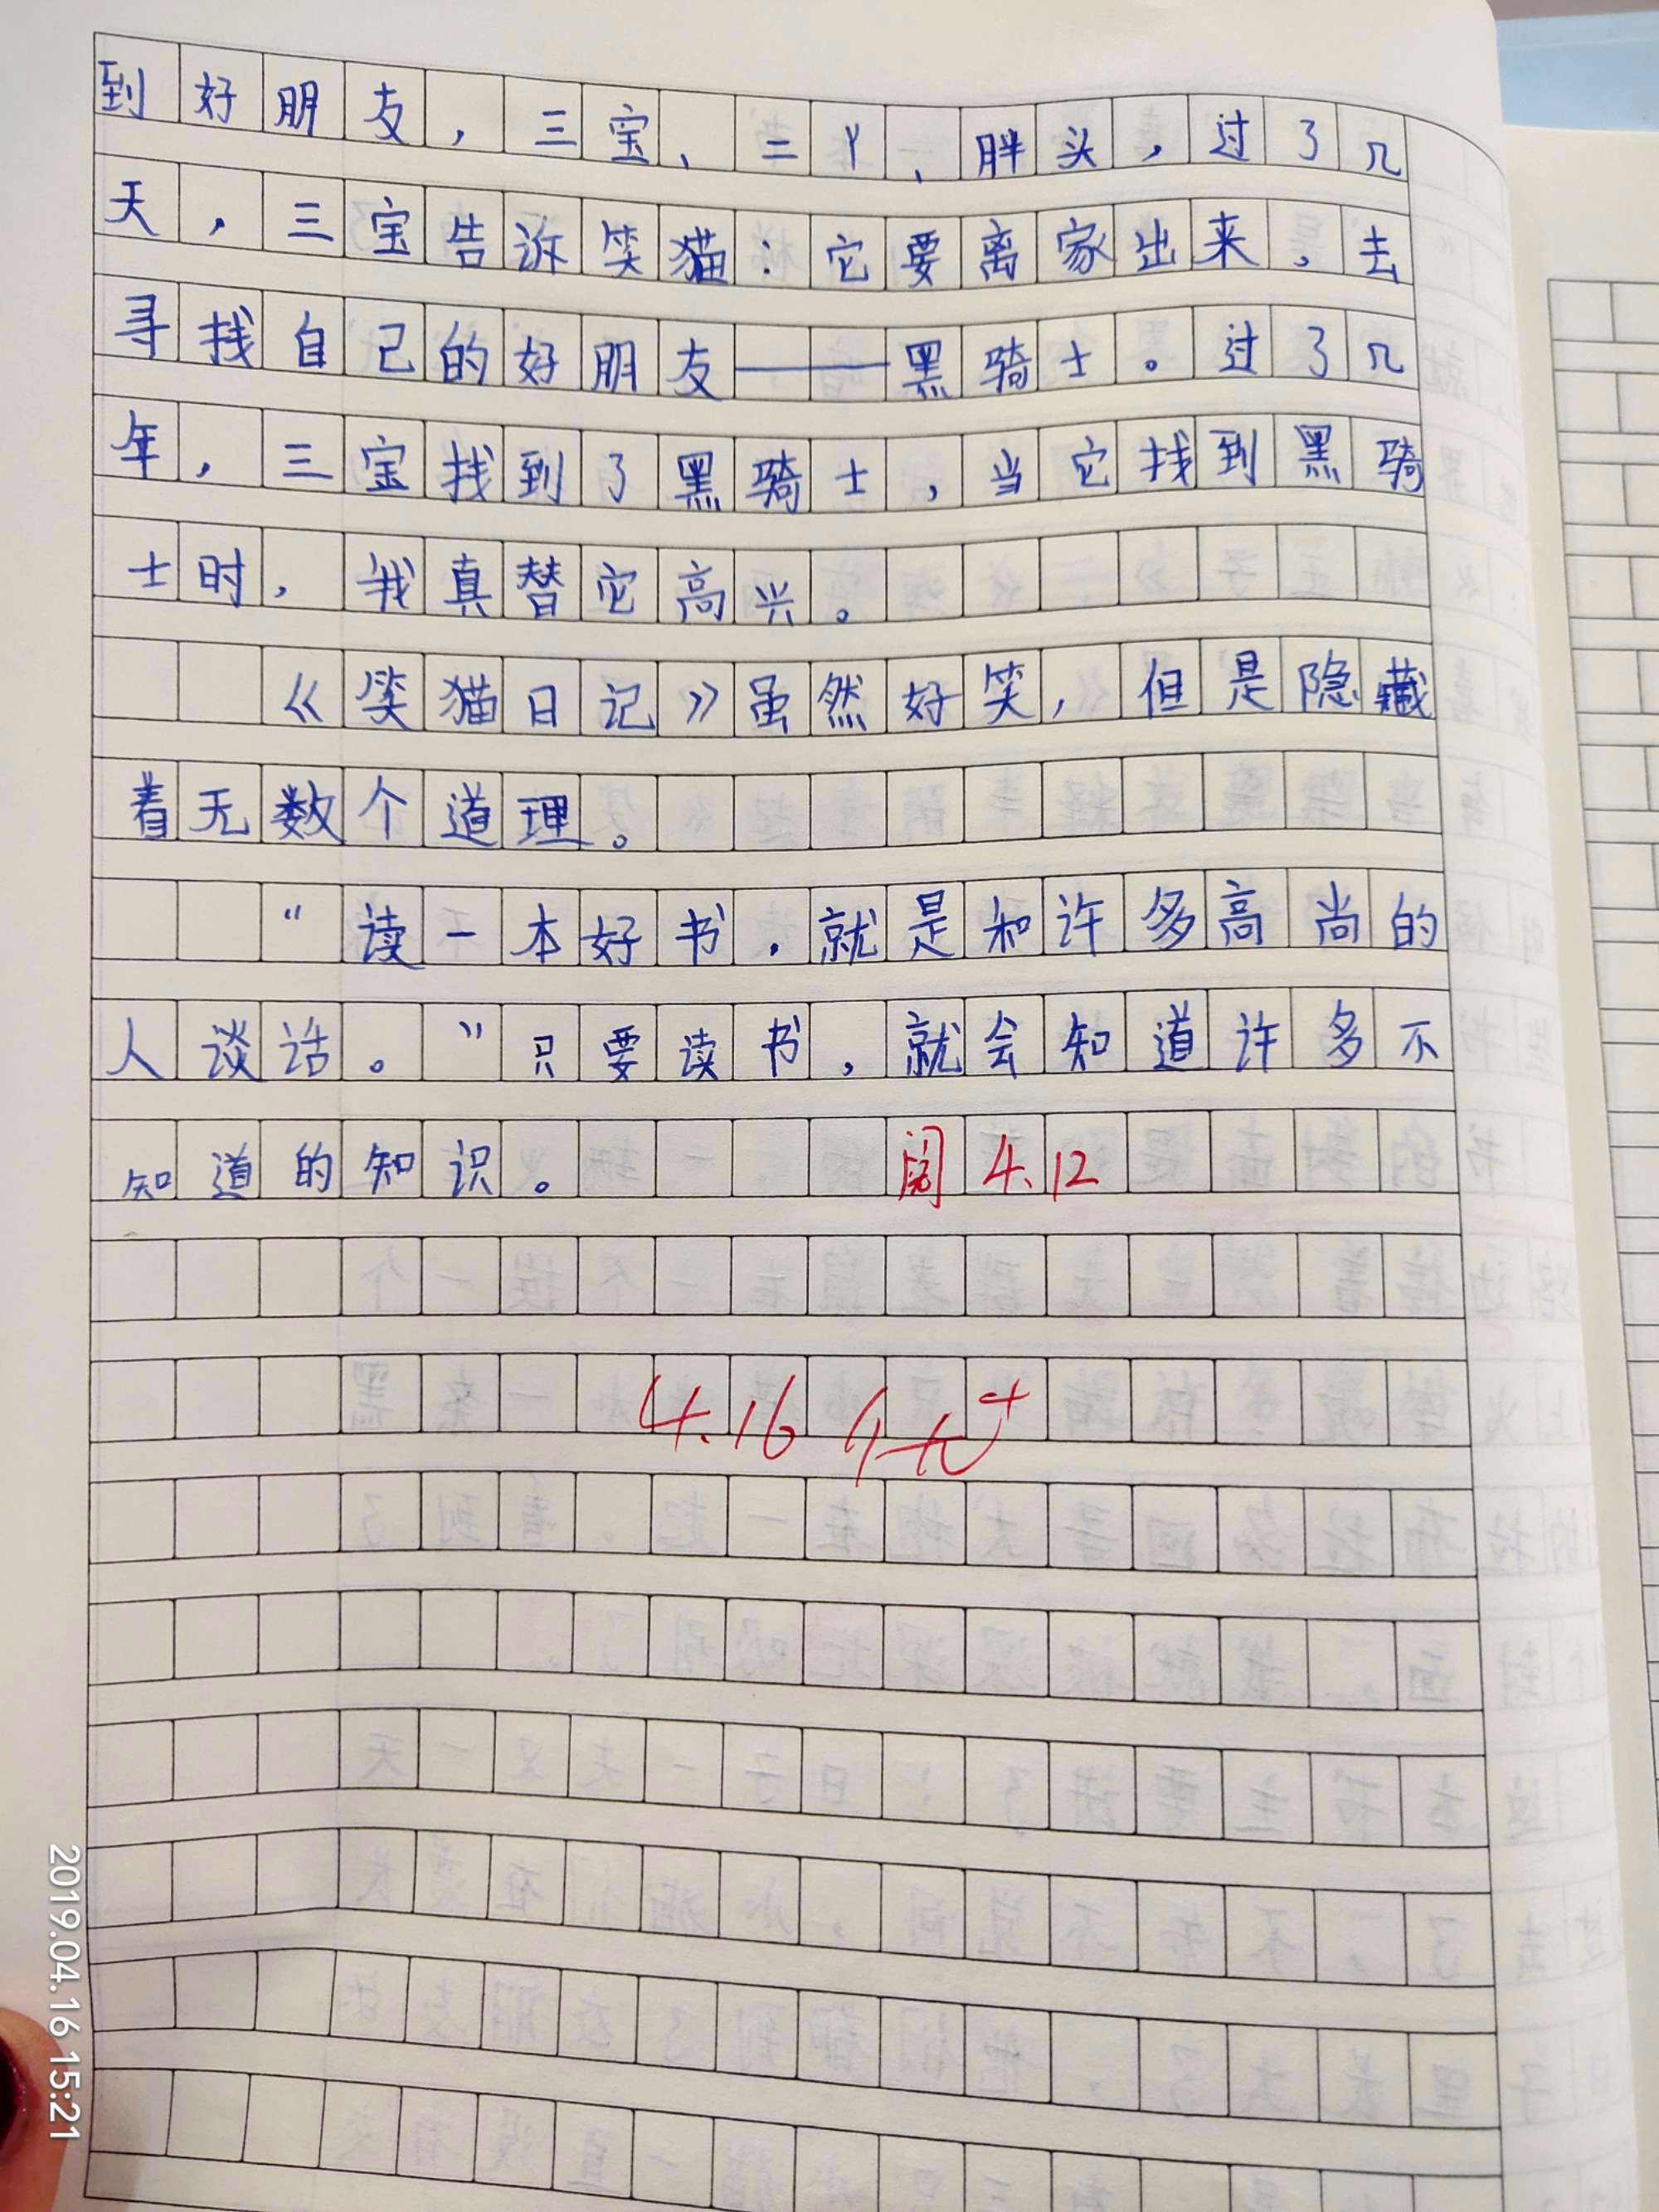 到好朋友，三宝、二丫、胖头，过了几
天，三宝告诉笑猫：它要离家出来，去
寻找自己的好朋友——黑骑士。过了几
年，三宝找到了黑骑士，当它找到黑骑
士时，我真替它高兴。
《笑猫日记》虽然好笑，但是隐藏
着无数个道理。
“读一本好书，就是和许多高尚的
人谈话。”只要读书，就会知道许多不
知道的知识。 阅 4.12
4.16 优+
2019.04.16 15:21